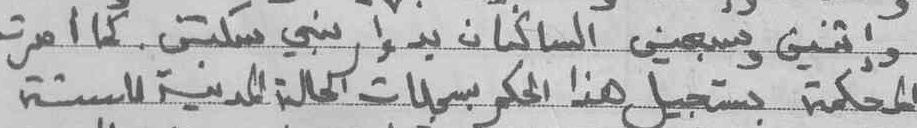 واثنين وسبعين الساكنان بدوار بني سكتن. كما أمرت
المحكمة بتسجيل هذا الحكم بسجلات الحالة المدنية للسنة